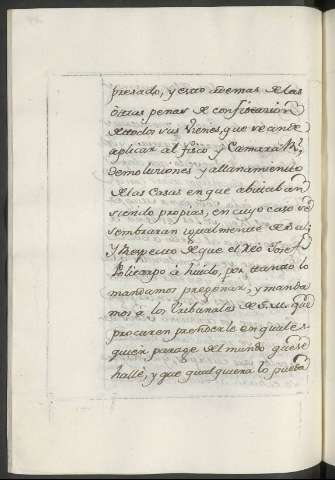 presado, y esto ademas de las
otras penas de confiscacion
de todos sus vienes, que se ande
aplicar al fisco y Camara Rl,
demoluiones y allanamiento
de las Casas en que abitaban
siendo propias, en cuyo caso se
sembraran igualmente de Sal.
Y Respecto de que el Reo Jose
Policarpo á huido, por tanto lo
mandamos pregonar, y manda
mos á los Tribunales de S.M. que
procuren prenderle en quales
quier parage del mundo que se
halle, y que qualquiera lo pueda